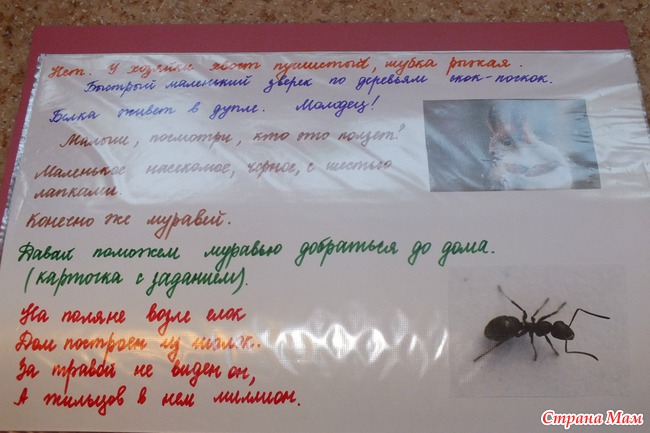 Нет. У хозяйки хвост пушистый, шубка рыжая.
Быстрый маленький зверек по деревьям скок-поскок.
Белка живет в дупле. Молодец!
Малыш, посмотри, кто это ползет?
Маленькое насекомое, черное, с шестью
лапками.
Конечно же муравей.
Давай поможем муравью добраться до дома.
(карточка с заданием).
На поляне возле елок
Дом построен из иголок.
За травой не виден он,
А жильцов в нем миллион.
Страна Мам